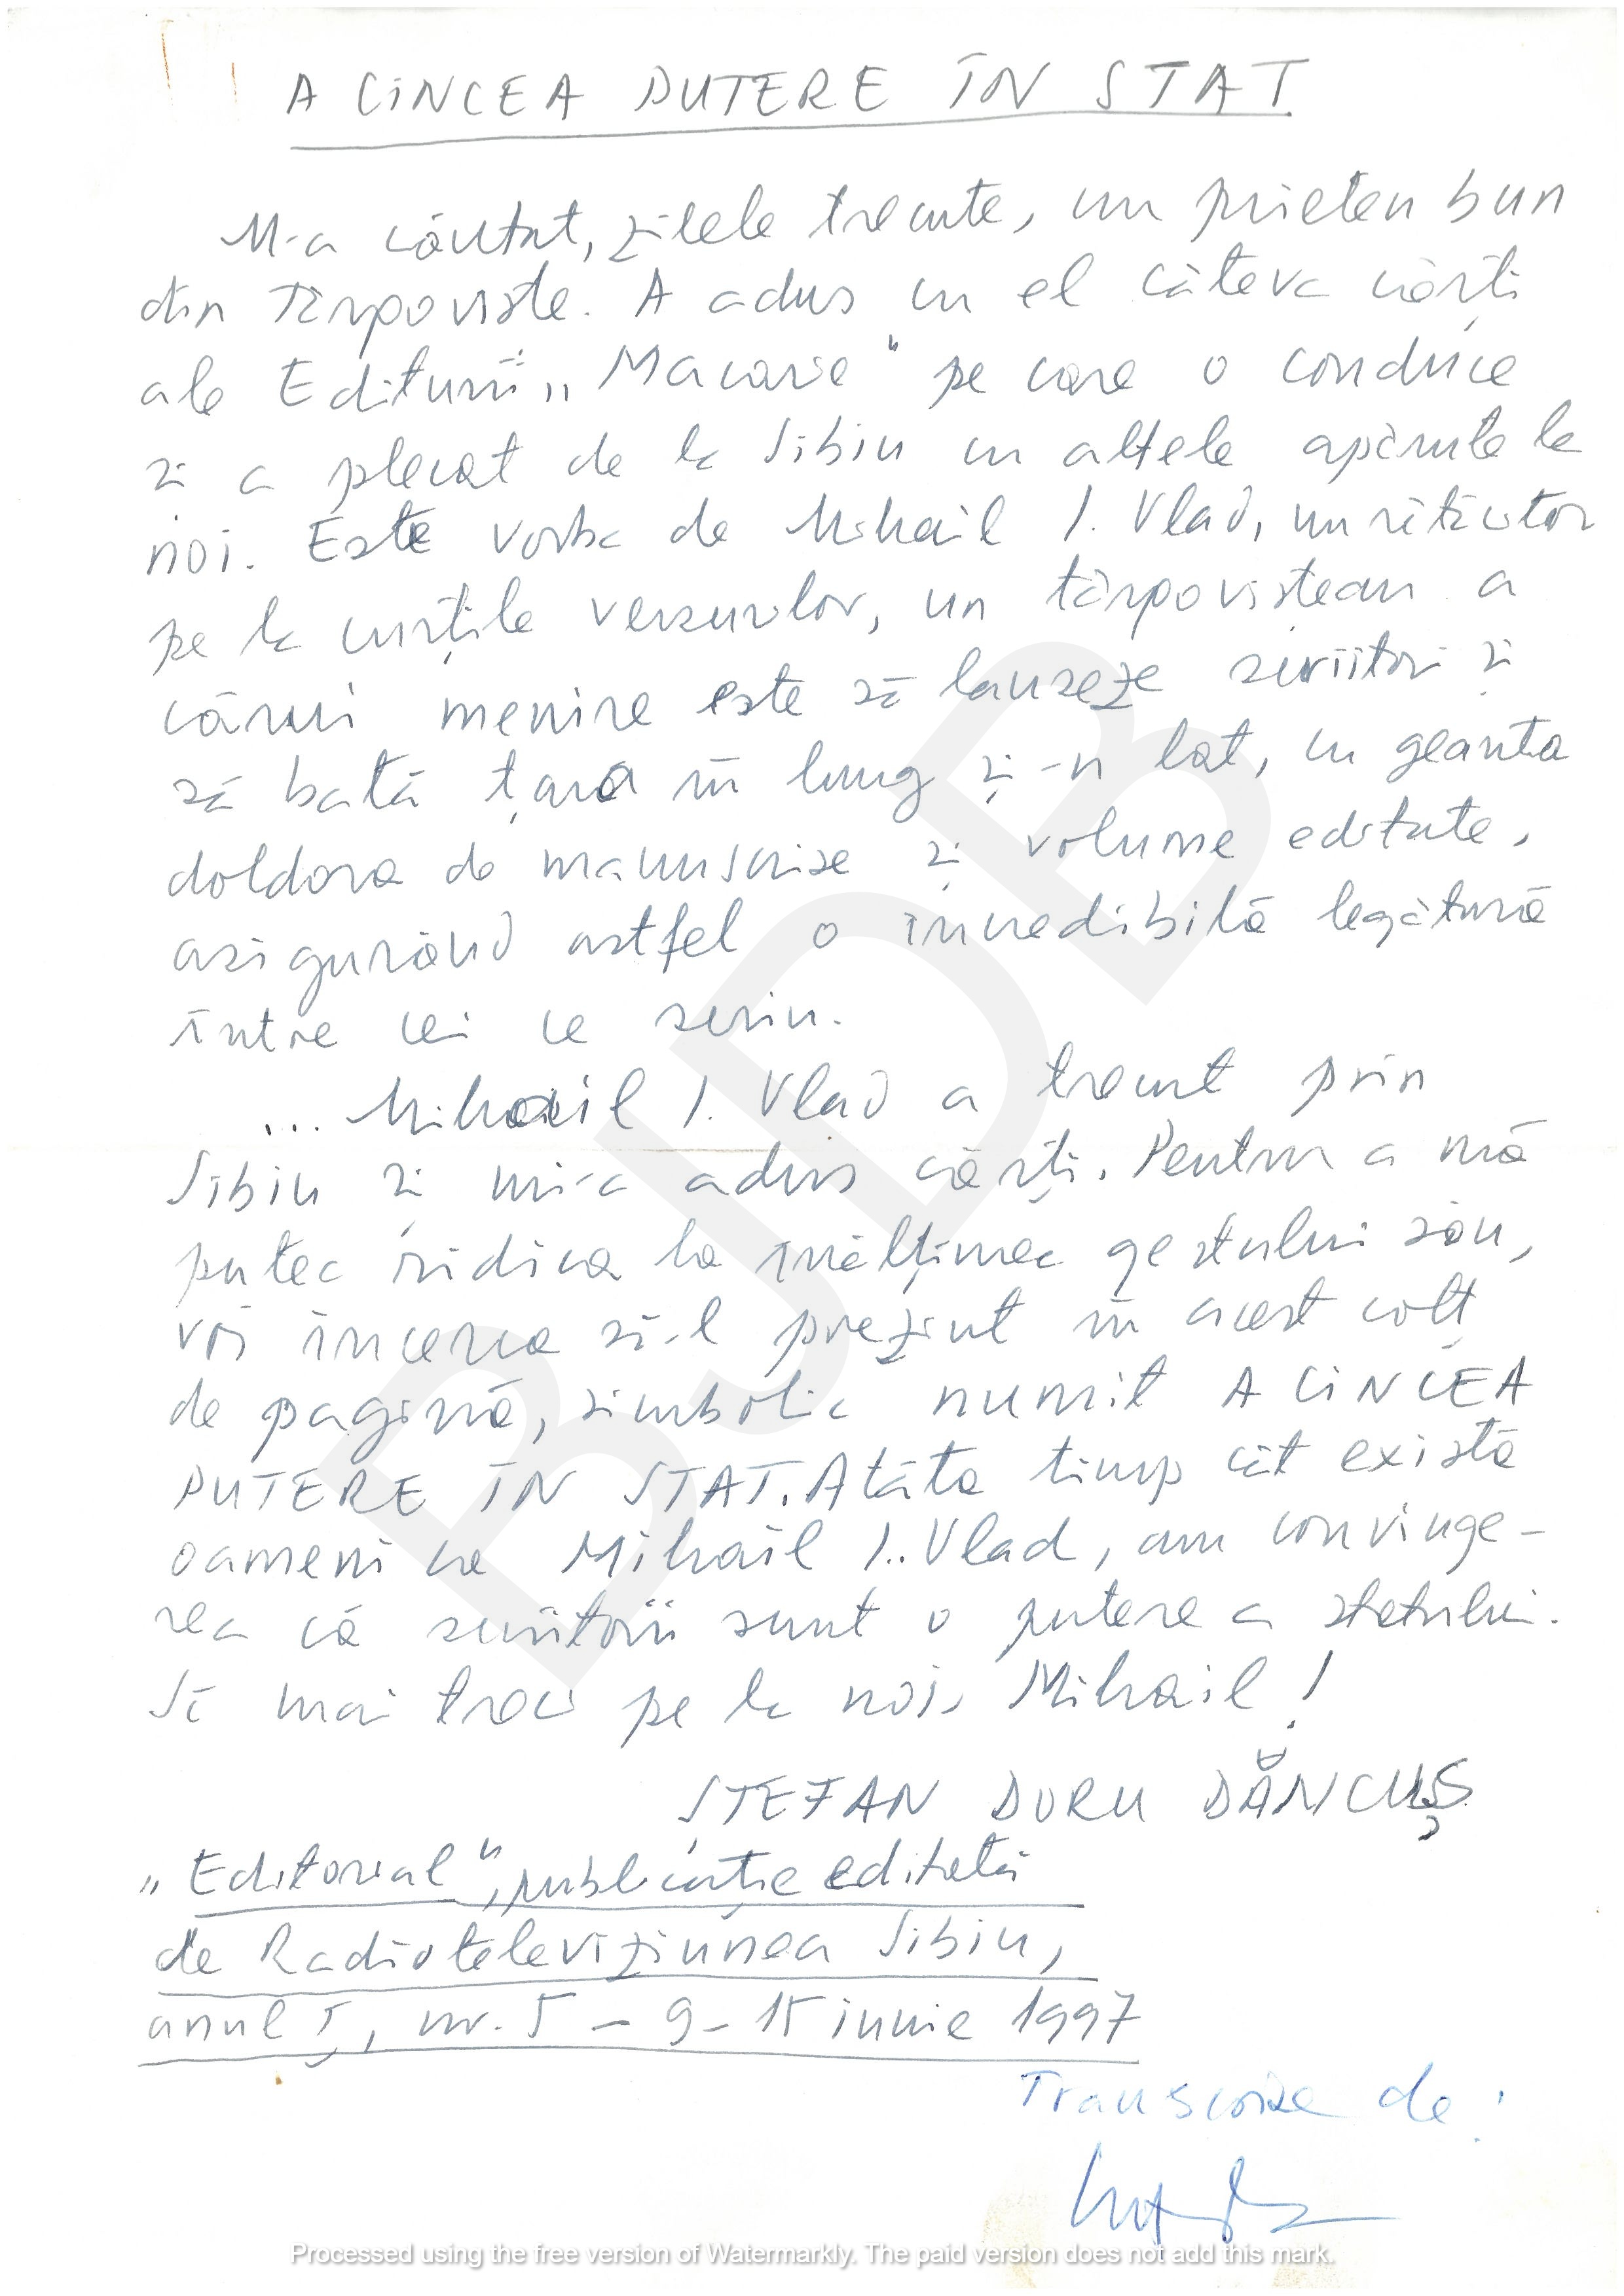 A CINCEA PUTERE ÎN STAT
M-a căutat, zilele trecute, un prieten bun
din Târgoviște. A adus cu el câteva cărți
ale Editurii „Macarie" pe care o conduce
și a plecat de la Sibiu cu altele apărute la
noi. Este vorba de Mihail I. Vlad, un rătăcitor
pe la curțile versurilor, un târgoviștean a
cărui menire este să lanseze scriitori și
să bată țara în lung și-n lat, cu geanta
doldora de manuscrise și volume editate,
asigurând astfel o incredibilă legătură
între cei ce scriu.
... Mihail I. Vlad a trecut prin
Sibiu și mi-a adus cărți. Pentru a mă
putea ridica la înălțimea gestului său,
voi încerca să-l prezint în acest colț
de pagină, simbolic numit A CINCEA
PUTERE ÎN STAT. Atâta timp cât există
oameni ca Mihail I. Vlad, am convinge-
rea că scriitorii sunt o putere a statului.
Să mai treci pe la noi, Mihail!
ȘTEFAN DORU DĂNCUȘ
„Editorial", publicație editată
de Radioteleviziunea Sibiu,
anul I, nr. 5 – 9-15 iunie 1997
Transcrise de:
BJDB
Processed using the free version of Watermarkly. The paid version does not add this mark.